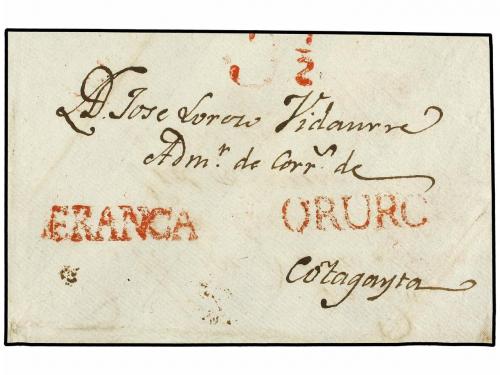 3 1/2
A D. Jose Lorezo Vidaurre
Adm.r de Corr.s de
FRANCA ORURO
Cotagayta